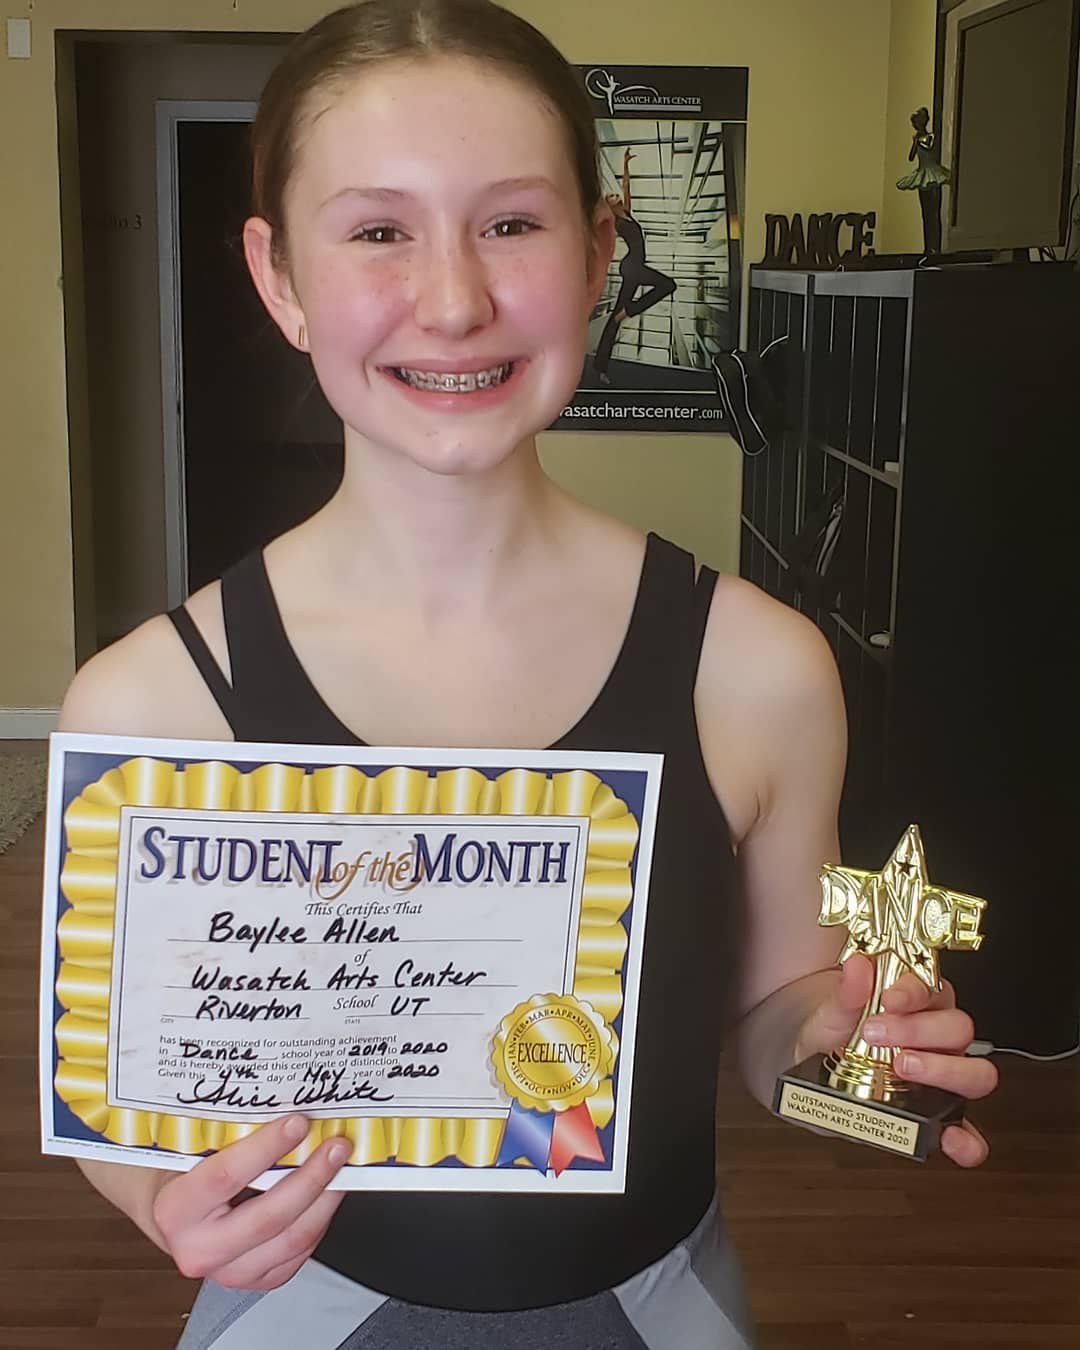 WASATCH ARTS CENTER
DANCE
3
asatchartscenter.com
STUDENT of the MONTH
This Certifies That
Baylee Allen
of
Wasatch Arts Center
Riverton School UT
CITY STATE
has been recognized for outstanding achievement
in Dance school year of 2019 to 2020
and is hereby awarded this certificate of distinction.
Given this 4th day of May year of 2020
Alice White
JAN•FEB•MAR•APR•MAY•JUNE
EXCELLENCE
SEPT•OCT•NOV•DEC
DANCE
OUTSTANDING STUDENT AT
WASATCH ARTS CENTER 2020